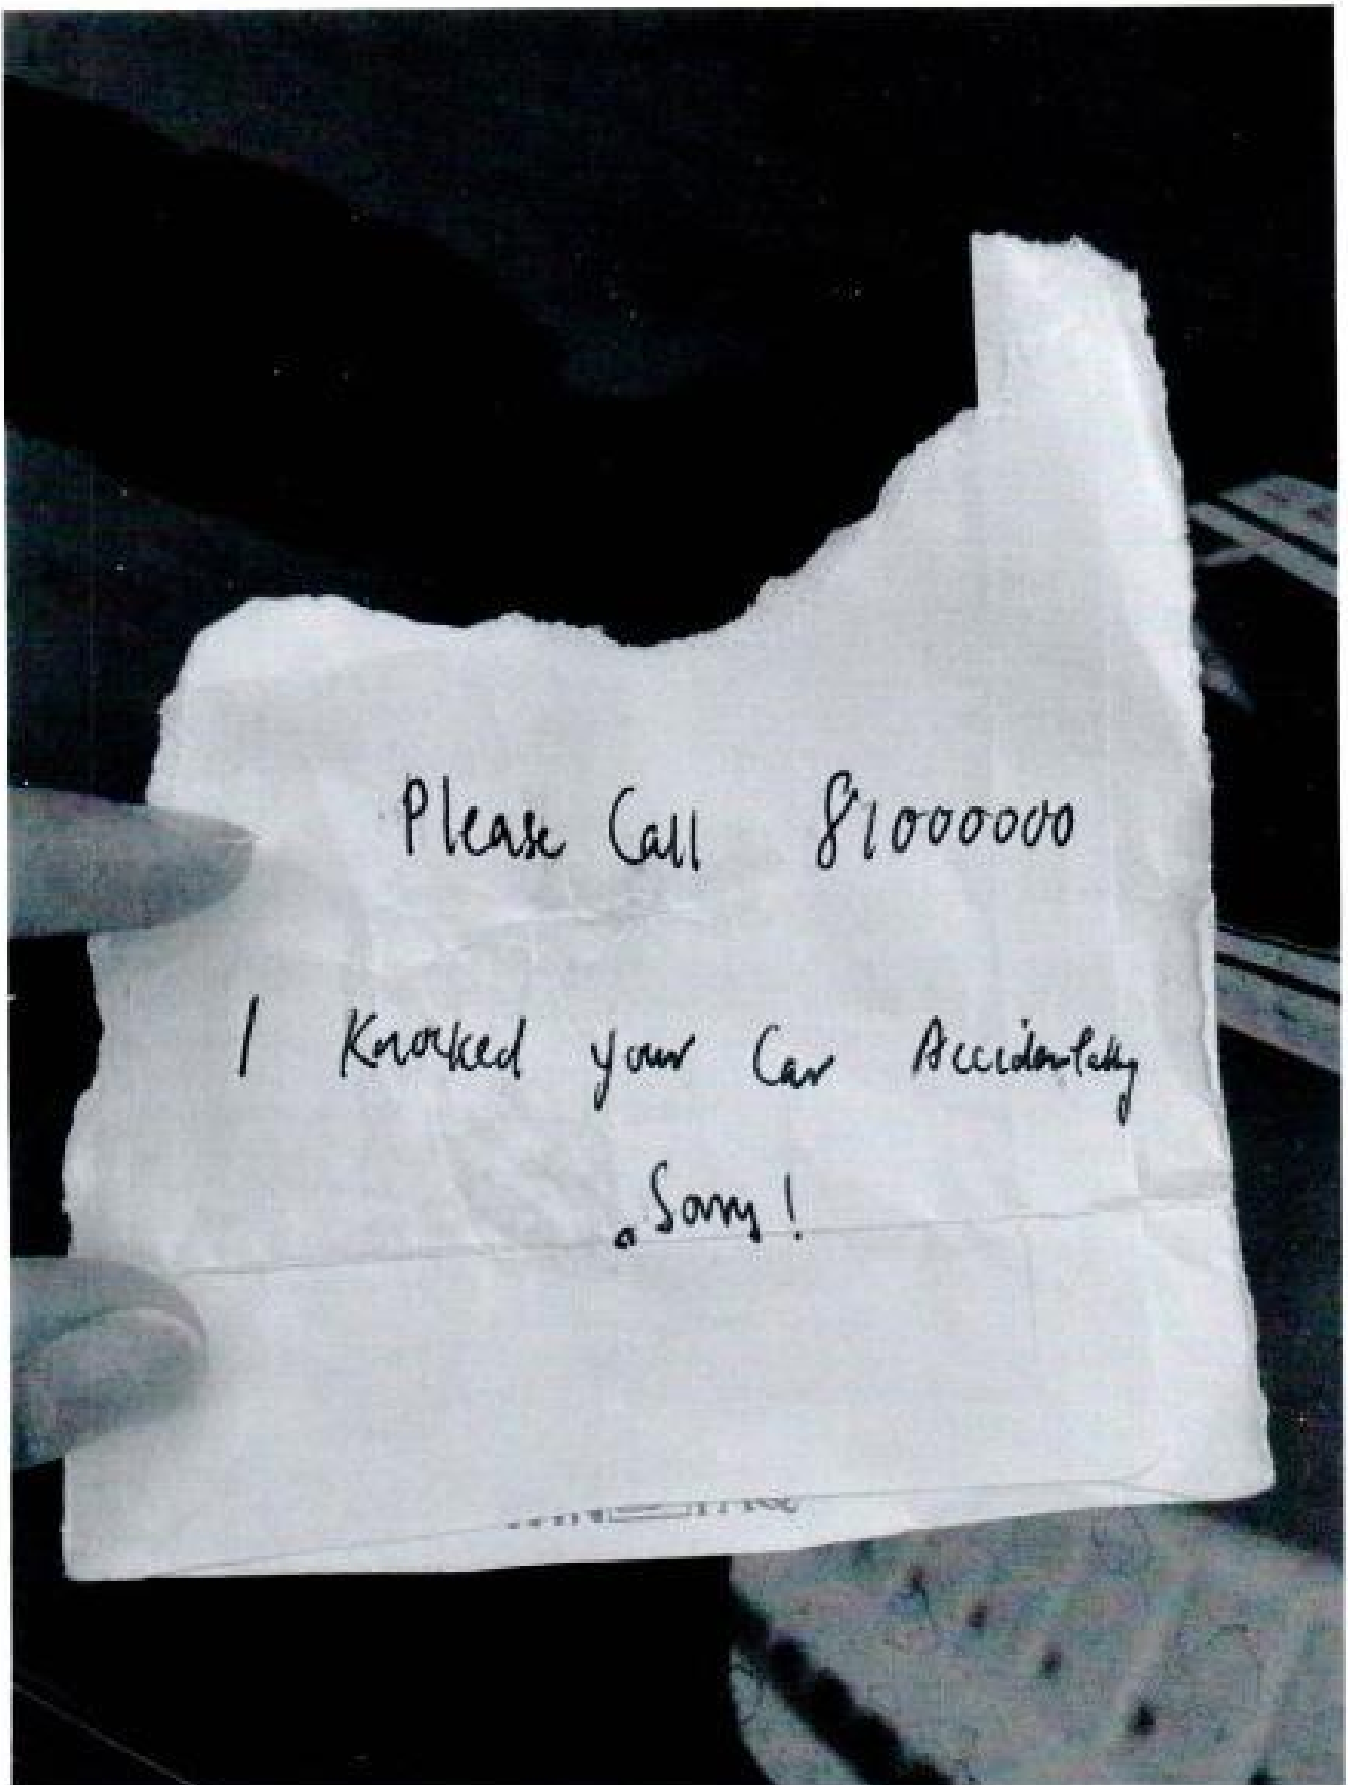 Please Call 81000000
I Knocked your Car Accidentally
Sorry!